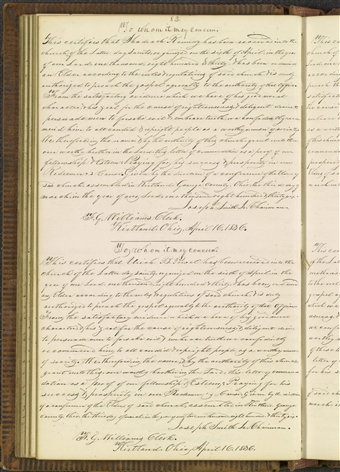 13
To whom it may concern.
This certifies that has been received into the
church of the Latter day Saints organized on the sixth of April in the year
of our Lord one thousand eight hundred & thirty & has been ordained
an Elder according to the rules & regulations of said church & is duly
authorized to preach the gospel agreeably to the authority of that office
From the satisfactory evidence which we have of his good moral
character & his zeal for the cause of righteousness & diligent desire to
persuade men to forsake evil & embrace truth we confidently recom-
mend him to all candid & upright people as a worthy member of society
We therefore in the name & by the authority of this church grant unto this
our worthy brother in the Lord this letter of commendation as a proof of our
fellowship & Esteem Praying for his success & prosperity in our
Redeemers Cause Given by the direction of a conference of the Elders of
said church assembled in Kirtland Geauga County Ohio the third day of
March in the year of our Lord one thousand eight hundred & thirty six
Joseph Smith Jr Chairman
F. G. Williams Clerk.
Kirtland Ohio, April 16, 1836.
To whom it may concern.
This certifies that has been received into the
church of the Latter day Saints organized on the sixth of April in the
year of our Lord one thousand eight hundred & thirty & has been ordained
an Elder according to the rules & regulations of said church & is duly
authorized to preach the gospel agreeably to the authority of that office
From the satisfactory evidence which we have of his good moral
character & his zeal for the cause of righteousness & diligent desire
to persuade men to forsake evil & embrace truth we confidently
recommend him to all candid & upright people as a worthy member
of society We therefore in the name & by the authority of this church
grant unto this our worthy brother in the Lord this letter of commen-
dation as a proof of our fellowship & Esteem Praying for his
success & prosperity in our Redeemers Cause Given by the direction
of a conference of the Elders of said church assembled in Kirtland Geauga
county Ohio the third day of March in the year of our Lord one thousand eight hundred & thirty six
Joseph Smith Jr Chairman
F. G. Williams Clerk
Kirtland Ohio, April 16, 1836.